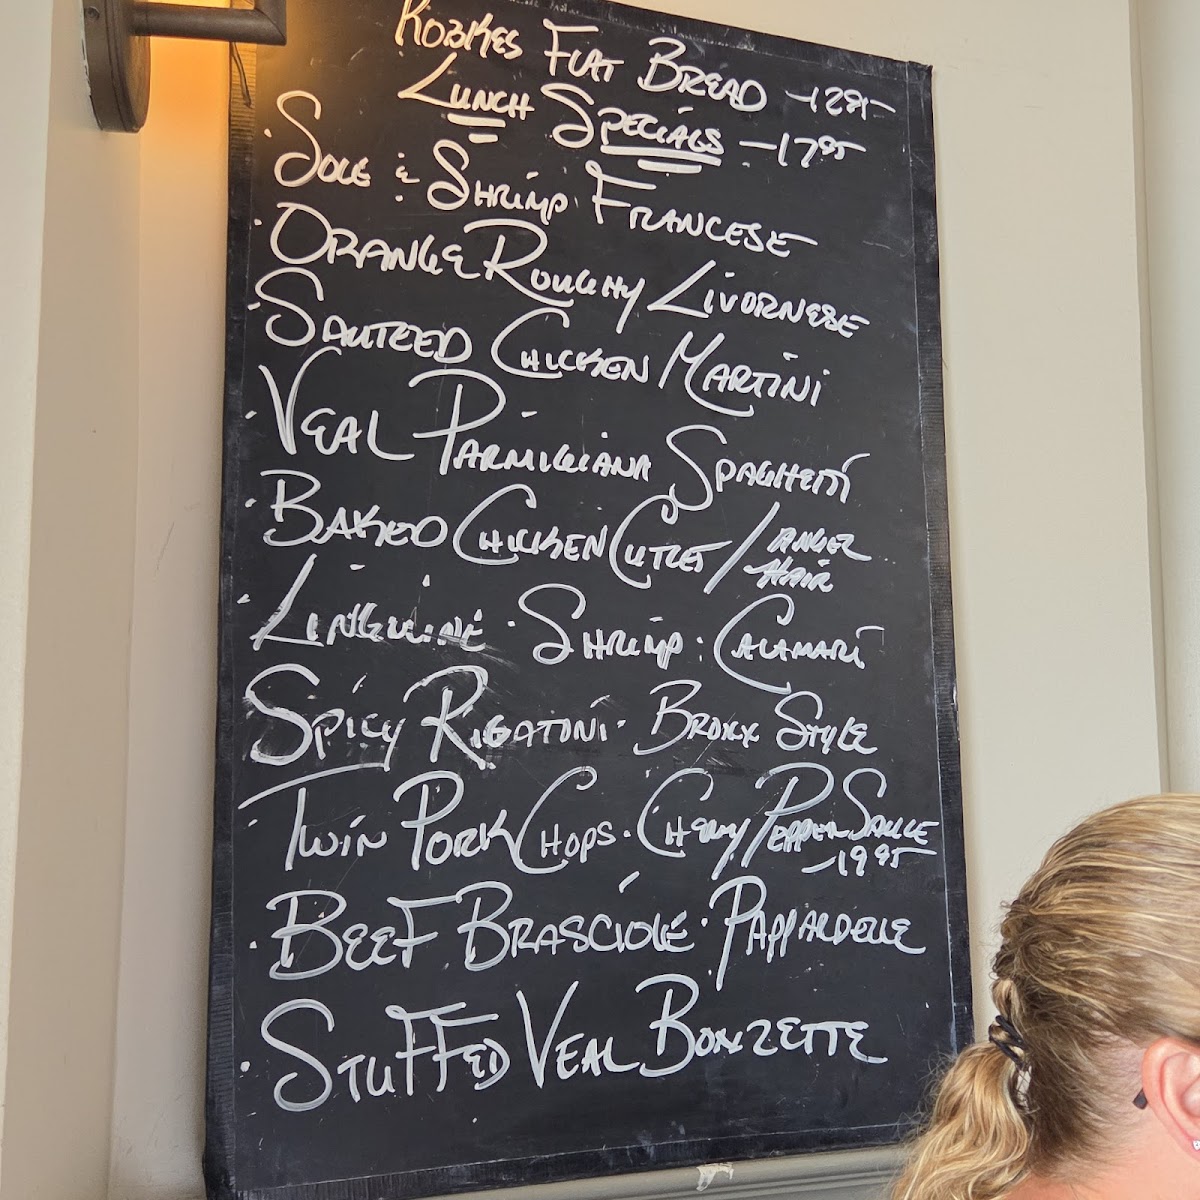 Robkes Flat Bread -12.95-
Lunch Specials -17.95
· Sole & Shrimp Francese
· Orange Roughy Livornese
· Sauteed Chicken Martini
· Veal Parmigiana Spaghetti
· Baked Chicken Cutlet / Angel Hair
· Linguine · Shrimp · Calamari
Spicy Rigatoni · Bronx Style
Twin Pork Chops · Cherry Pepper Sauce
-19.95
· Beef Brasciole · Pappardelle
· Stuffed Veal Bonzette